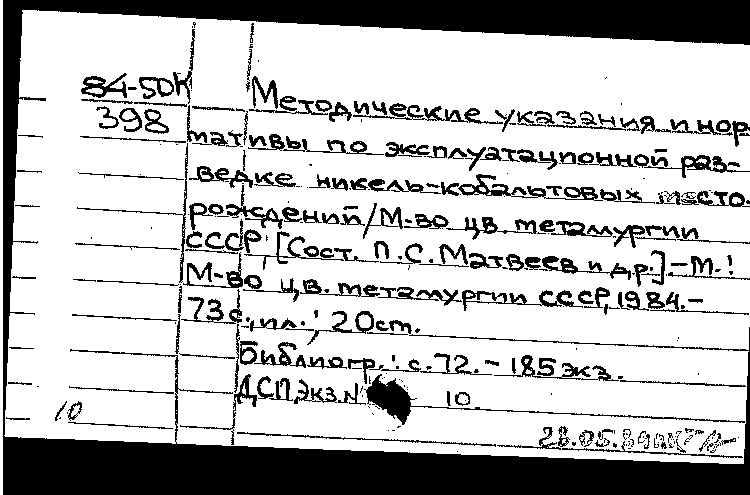 84-5DК
398
Методические указания и нор-
мативы по эксплуатационной раз-
ведке никель-кобальтовых место-
рождений/М-во цв. металургии
СССР; [Сост. П.С. Матвеев и др.].-М.:
М-во цв. металургии СССР, 1984.-
73 с., ил.; 20 cm.
Библиогр.: с. 72. - 185 экз.
ДСП. Экз. N 10.
10
28.05.84